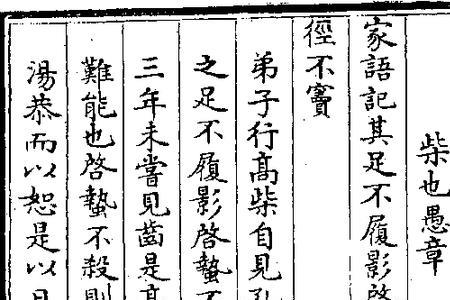 柴也愚章
家語記其足不履影啓
徑不竇
弟子行高柴自見孔
之足不履影啓蟄不
三年未嘗見齒是高
難能也啓蟄不殺則
湯恭而以恕是以日